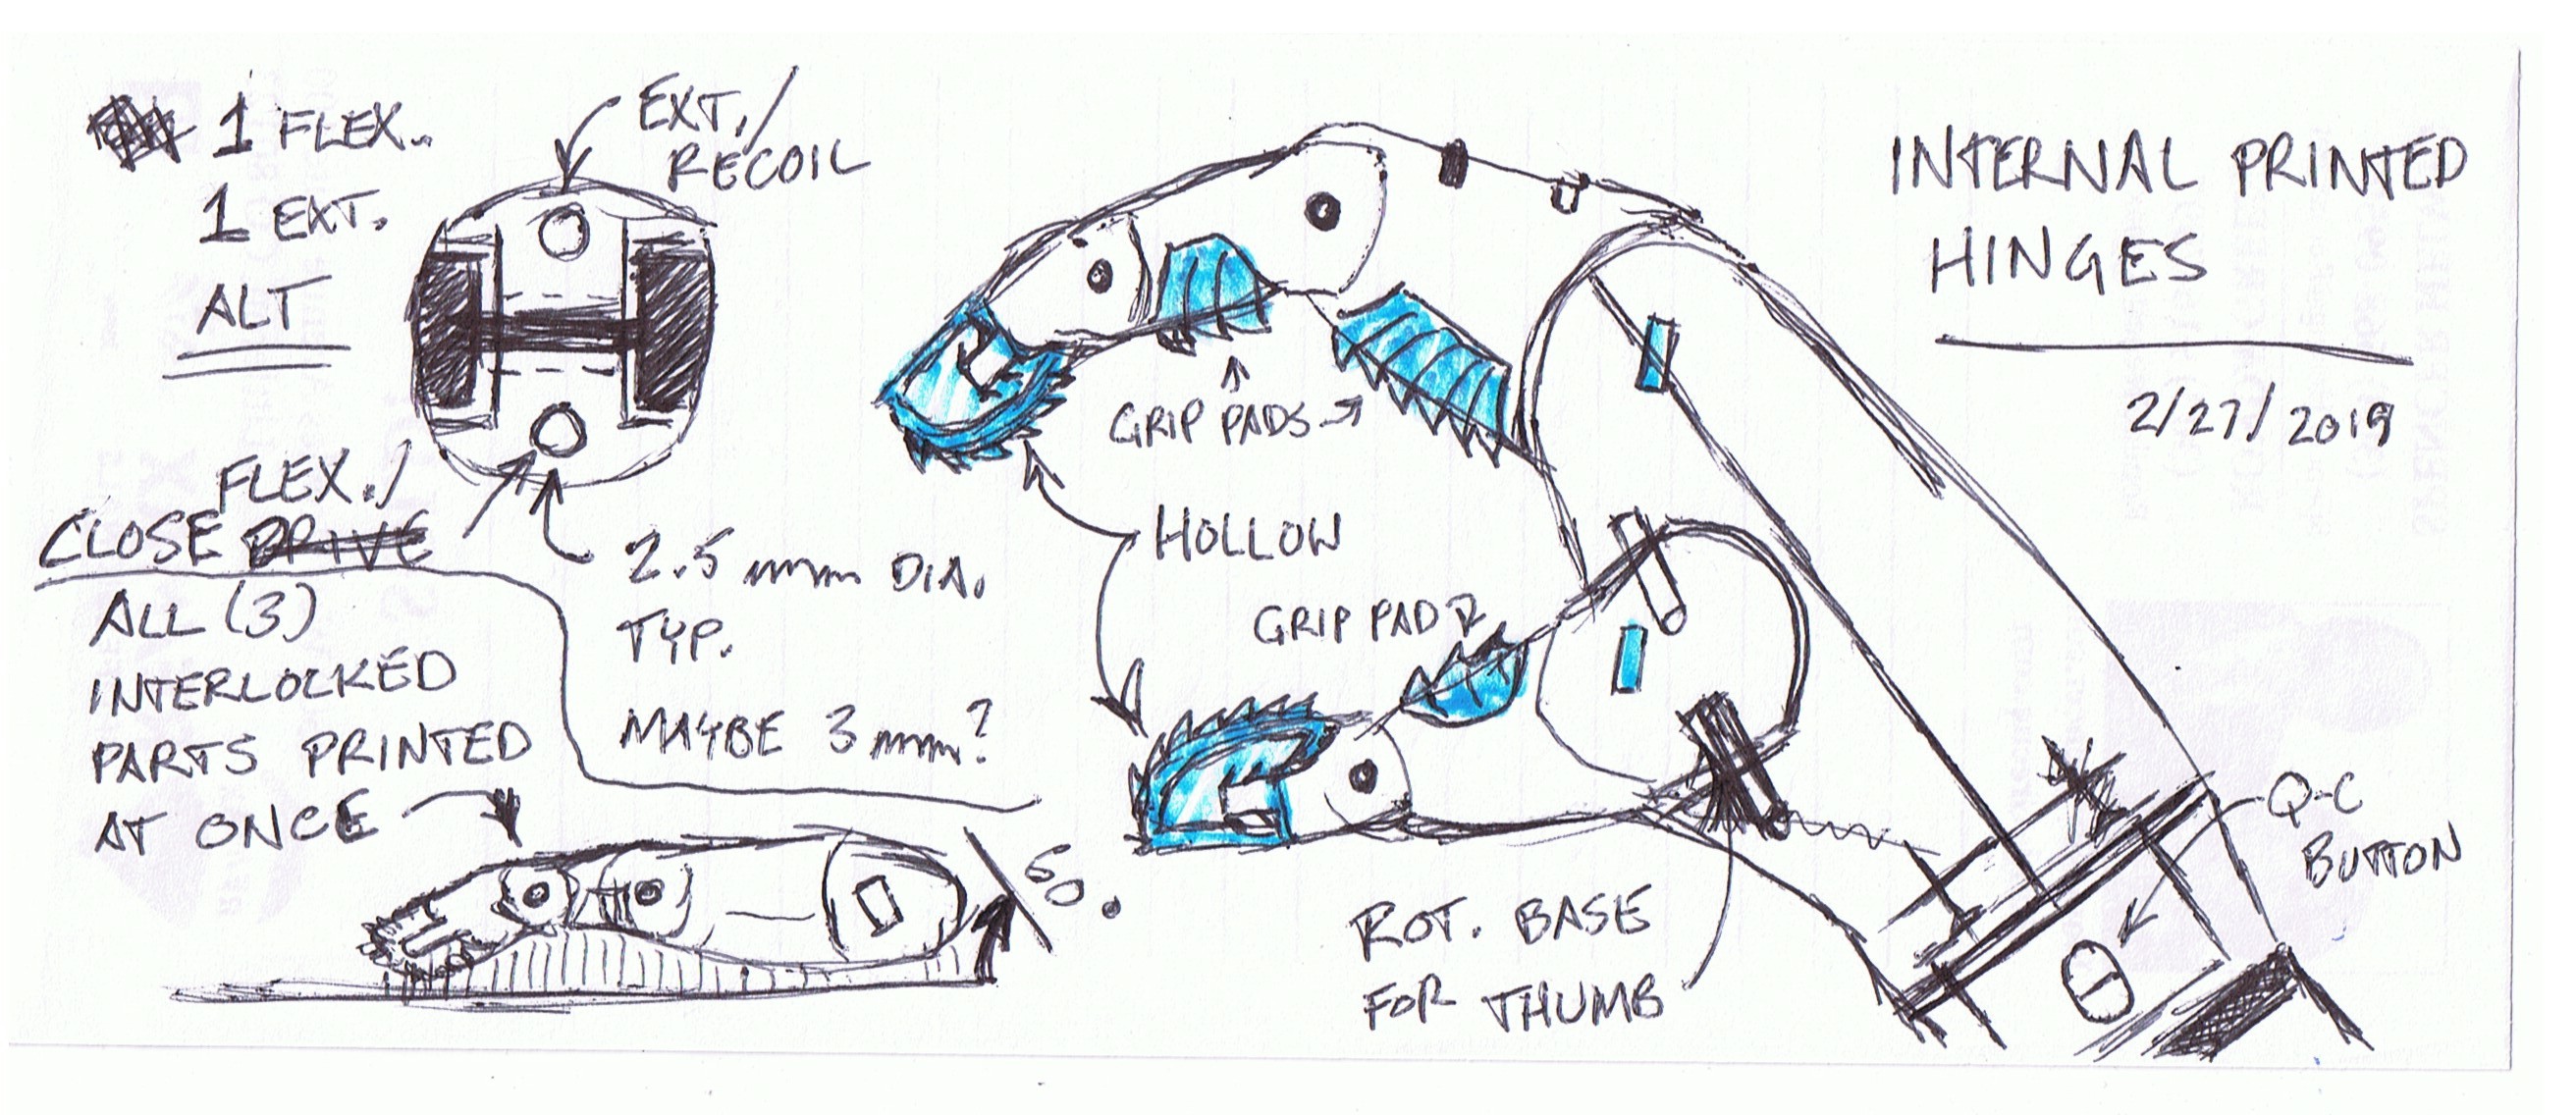 1 FLEX.
1 EXT.
ALT
EXT./
RECOIL
FLEX./
CLOSE DRIVE
2.5 mm DIA.
TYP.
MAYBE 3 mm?
ALL (3)
INTERLOCKED
PARTS PRINTED
AT ONCE
60°
GRIP PADS
HOLLOW
GRIP PAD
ROT. BASE
FOR THUMB
INTERNAL PRINTED
HINGES
2/27/2019
Q-C
BUTTON